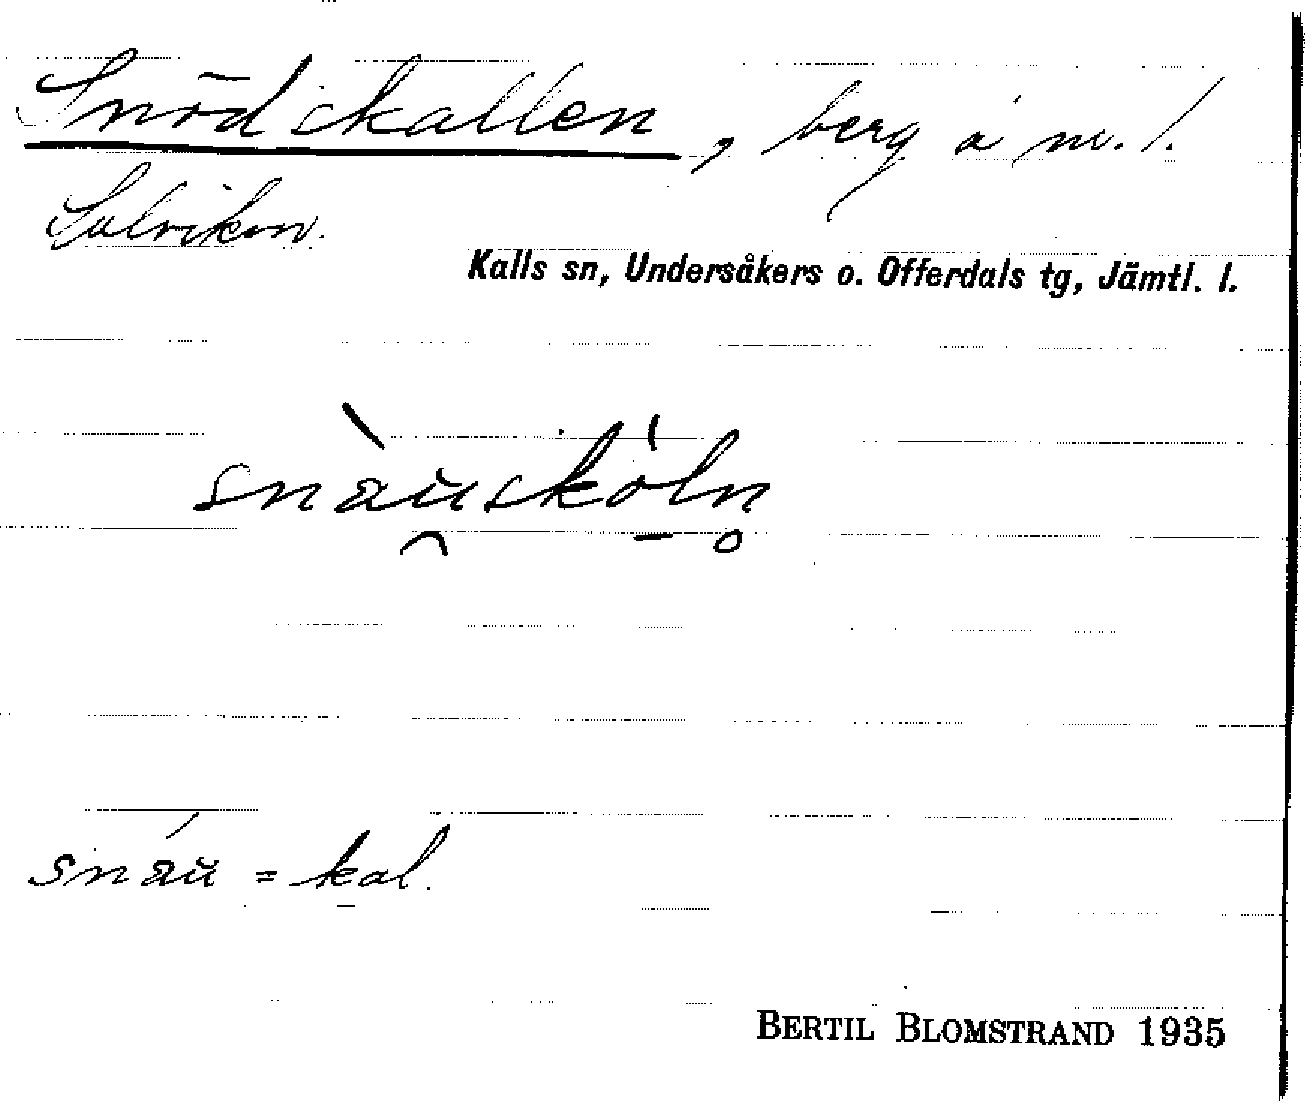 Snödskallen, berg å nv. l.
Sulviken.
Kalls sn, Undersåkers o. Offerdals tg, Jämtl. l.
snàusköln
snáu = kal.
BERTIL BLOMSTRAND 1935